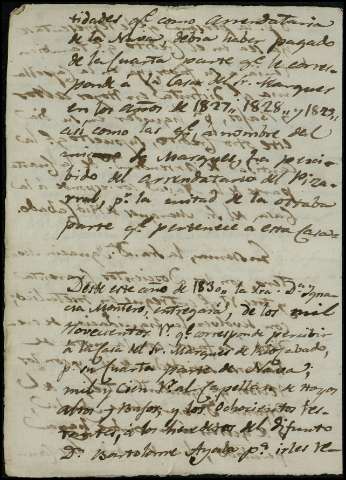 tidades qe. como Arrendataria
de la Nava, debia haber pagado
de la Cuarta parte qe. le corres-
ponde à la Casa del Sr. Marques
en los años de 1827,, 1828,, y 1829,,
asi como las qe. à nombre del
mismo Sr. Marques, ha perci-
bido del arrendatario del Piza-
rral, pr. la mitad de la octaba
parte qe. pertenece a esta Casa.
Desde este año de 1830,, la Sra. Da. Igna-
cia Montero, entregarà, de los mil
Novecientos Rs. qe. corresponde percibir
à la Casa del Sr. Marques de
pr. su Cuarta parte de Nava,
mil y Cien Rs. al Capellan de Hoyos
y los Ochocientos res-
tantes, à los herederos del difunto
Dn. Bartolome Ayala pa. irles re-